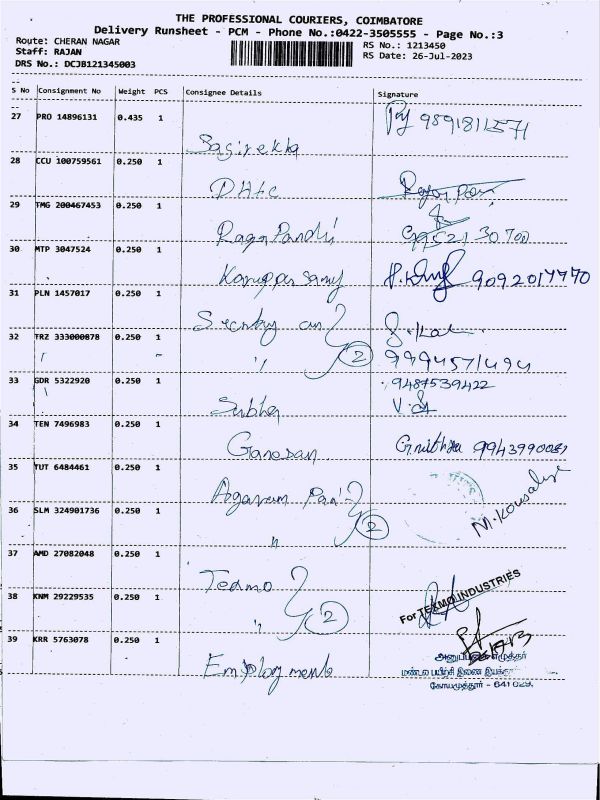 THE PROFESSIONAL COURIERS, COIMBATORE
Delivery Runsheet - PCM - Phone No.:0422-3505555 - Page No.:3
Route: CHERAN NAGAR
RS No.: 1213450
Staff: RAJAN
RS Date: 26-Jul-2023
DRS No.: DCJB121345003
S No Consignment No Weight PCS Consignee Details Signature
27 PRO 14896131 0.435 1
9891811571
Sasirekha
28 CCU 100759561 0.250 1
DHLC
29 TMG 200467453 0.250 1
Raga Pandi 99521 30700
30 MTP 3047524 0.250 1
Karuppasamy 9092017770
31 PLN 1457017 0.250 1
32 TRZ 333000878 0.250 1
" 2 9994571494
33 GDR 5322920 0.250 1 9487539422
Subha
34 TEN 7496983 0.250 1
Ganesan
35 TUT 6484461 0.250 1
M.Kousalya
36 SLM 324901736 0.250 1
" 2
37 AMD 27082048 0.250 1
Texmo
For TEXMO INDUSTRIES
38 KNM 29229535 0.250 1
" 2
39 KRR 5763078 0.250 1
Employment
மண்டல பயிற்சி இணை
கோயமுத்தூர் - 641 029.